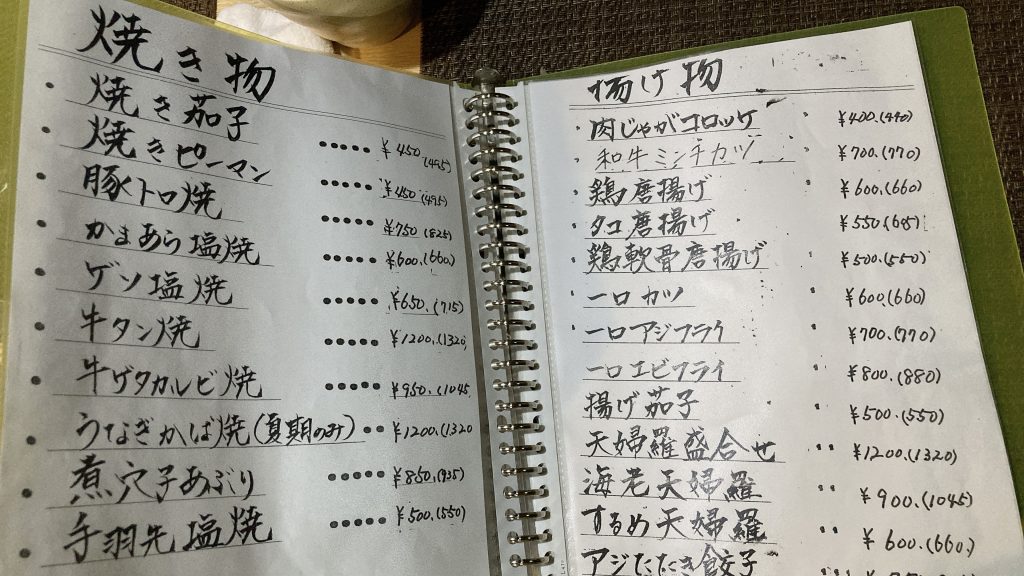 焼き物
焼き茄子 ••••• ¥450(495)
焼きピーマン ••••• ¥450(495)
豚トロ焼 ••••• ¥750(825)
かまあら塩焼 ••••• ¥600(660)
ゲソ塩焼 ••••• ¥650.(715)
牛タン焼 ••••• ¥1200(1320)
牛ゲタカルビ焼 ••••• ¥950.(1045
うなぎかば焼(夏期のみ) •• ¥1200(1320
煮穴子あぶり ••••• ¥850(935)
手羽先塩焼 ••••• ¥500.(550)
揚け物
肉じゃがコロッケ ¥400.(440)
和牛ミンチカツ ¥700.(770)
鶏唐揚げ ¥600(660)
タコ唐揚げ ¥550(605)
鶏軟骨唐揚げ ¥500.(550)
一口カツ ¥600(660)
一口アジフライ ¥700.(770)
一口エビフライ ¥800.(880)
揚げ茄子 ¥500(550)
天婦羅盛合せ ¥1200(1320)
海老天婦羅 ¥900.(1045)
するめ天婦羅 ¥600.(660)
アジたたき餃子